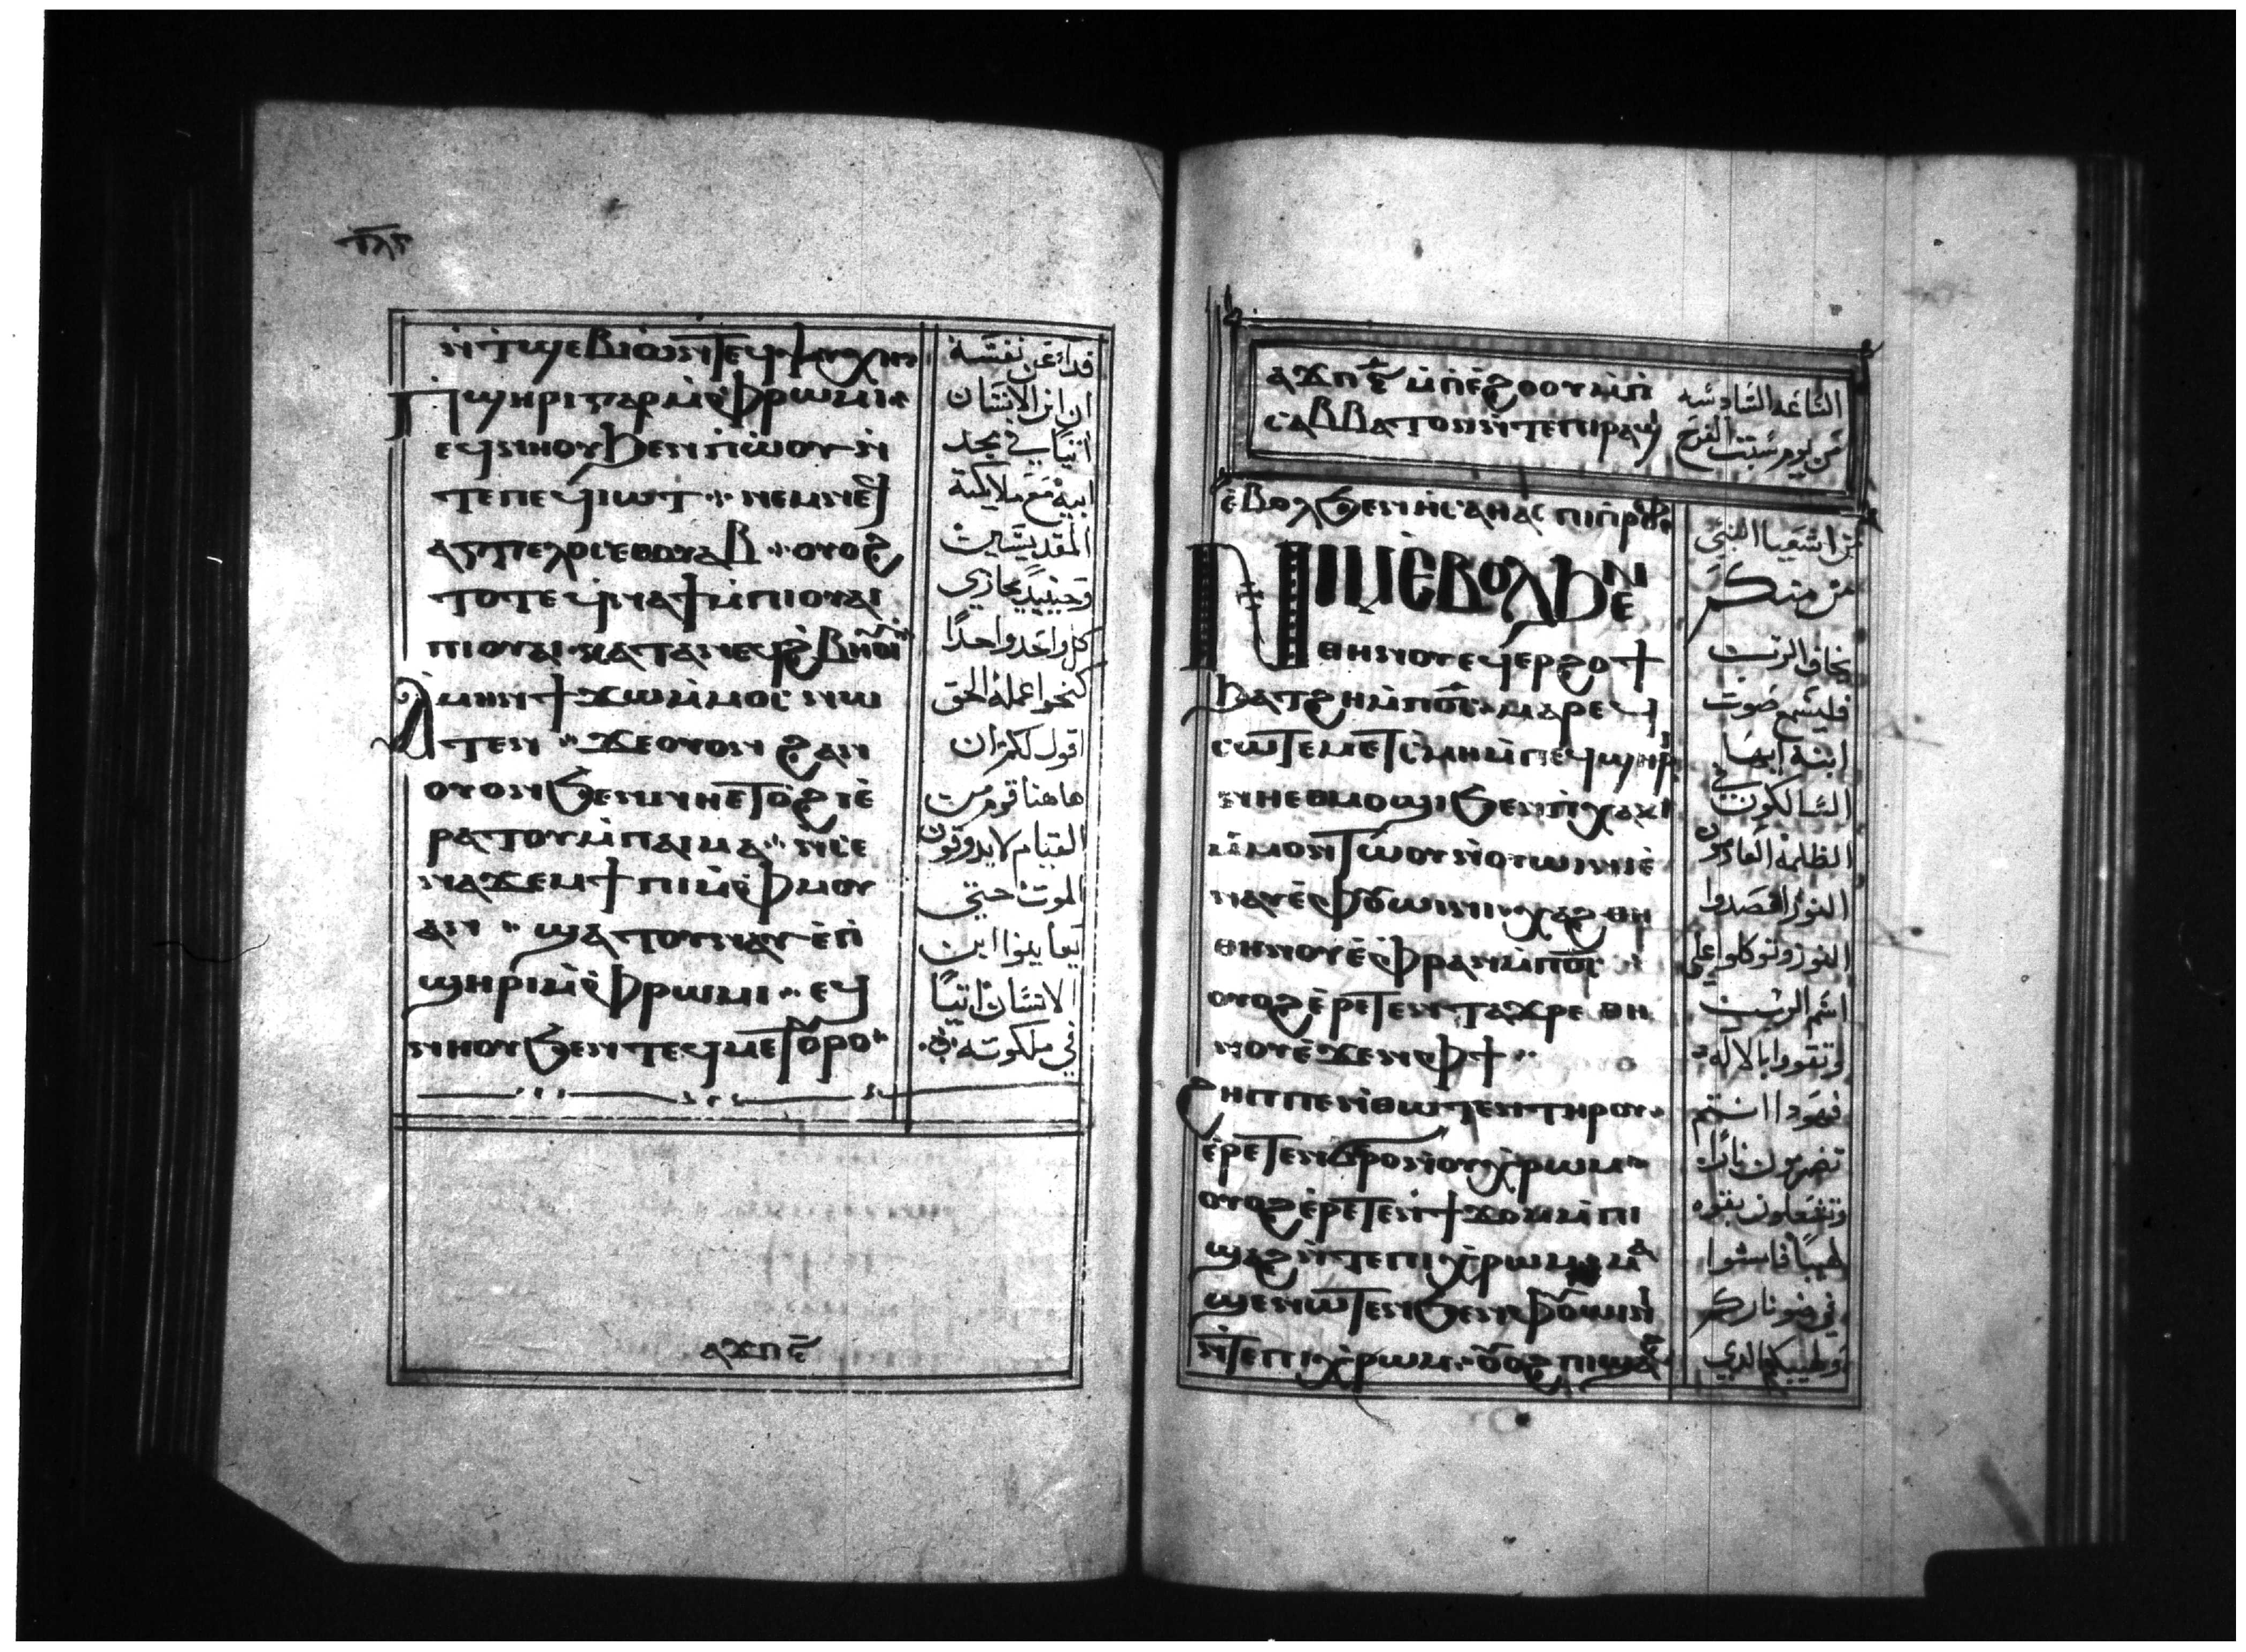 ⲛ̀ⲧϣⲉⲃⲓⲱ ⲛ̀ⲧⲉⲧⲉϥⲯⲩⲭⲏ
ⲡ̀ϣⲏⲣⲓ ⲅⲁⲣ ⲙ̀ⲫⲣⲱⲙⲓ
ⲉϥⲛⲏⲟⲩ ϧⲉⲛ ⲡ̀ⲱⲟⲩ ⲛ̀
ⲧⲉ ⲡⲉϥⲓⲱⲧ ⲛⲉⲙ ⲛⲉϥ
ⲁⲅⲅⲉⲗⲟⲥ ⲉⲑⲟⲩⲁⲃ ⲟⲩⲟϩ
ⲧⲟⲧⲉ ϥⲛⲁϯ ⲙ̀ⲡⲓⲟⲩⲁⲓ
ⲡⲓⲟⲩⲁⲓ ⲕⲁⲧⲁ ⲛⲉϥϩ̀ⲃⲏⲟⲩⲓ
ⲁⲙⲏⲛ ϯϫⲱ ⲙ̀ⲙⲟⲥ ⲛⲱ
ⲧⲉⲛ ϫⲉ ⲟⲩⲟⲛ ϩⲁⲛ
ⲟⲩⲟⲛ ϧⲉⲛ ⲛⲏⲉⲧⲟϩⲓ ⲉ̀
ⲣⲁⲧⲟⲩ ⲙ̀ⲡⲁⲓⲙⲁ ⲛ̀ⲥⲉ
ⲛⲁϫⲉⲙϯⲡⲓ ⲙ̀ⲫⲙⲟⲩ
ⲁⲛ ϣⲁⲧⲟⲩⲛⲁⲩ ⲉ̀ⲡ̀
ϣⲏⲣⲓ ⲙ̀ⲫⲣⲱⲙⲓ ⲉϥ
ⲛⲏⲟⲩ ϧⲉⲛ ⲧⲉϥⲙⲉⲧⲟⲩⲣⲟ
ⲁϫⲡ ⲋ̅
فداء عن نفسه
ان ابن الانسان
اتيا في مجد
ابيه مع ملايكته
المقديسين
وحينيد يجازي
كل واحد واحدا
كنحو اعماله الحق
اقول لكم ان
هاهنا قوم من
القيام لا يدوقون
الموت حتي
يعاينوا ابن
الانسان اتيا
في ملكوته
ⲁϫⲡ ⲋ̅ ⲙ̀ⲡⲉ̀ϩⲟⲟⲩ ⲙ̀ⲡ̀
ⲥⲁⲃⲃⲁⲧⲟⲛ ⲛ̀ⲧⲉ ⲡⲓⲣⲁϣⲓ
الساعه السادسه
من يوم سبت الفرح
ⲉ̀ⲃⲟⲗϧⲉⲛ ⲏⲥⲁⲏⲁⲥ ⲡⲓⲡⲣⲟⲫ
ⲛⲓⲙ ⲉ̀ⲃⲟⲗϧⲉⲛ
ⲑⲏⲛⲟⲩ ⲉϥⲉⲣϩⲟϯ
ϧⲁⲧϩⲏ ⲙ̀ⲡⲟ̅ⲥ̅ ⲙⲁⲣⲉϥ
ⲥⲱⲧⲉⲙ ⲉⲧⲥ̀ⲙⲏ ⲙ̀ⲡⲉϥϣⲏⲣⲓ
ⲛⲏⲉⲑⲙⲟϣⲓ ϧⲉⲛ ⲡⲓⲭⲁⲕⲓ
ⲙ̀ⲙⲟⲛⲧⲱⲟⲩ ⲛ̀ⲟⲩⲱⲓⲛⲓ ⲉ̀
ⲛⲁⲩ ⲉ̀ⲫⲟⲩⲱⲓⲛⲓ ⲭⲁϩ ⲑⲏ
ⲑⲏⲛⲟⲩ ⲉ̀ⲫⲣⲁⲛ ⲙ̀ⲡⲟ̅ⲥ̅
ⲟⲩⲟϩ ⲉ̀ⲣⲉⲧⲉⲛ ⲧⲁϫⲣⲉ ⲑⲏ
ⲛⲟⲩ ⲉ̀ϫⲉⲛ ⲫϯ
ϩⲏⲡⲡⲉ ⲛ̀ⲑⲱⲧⲉⲛ ⲧⲏⲣⲟⲩ
ⲉ̀ⲣⲉⲧⲉⲛϭⲣⲟ ⲛ̀ⲟⲩⲭ̀ⲣⲱⲙ
ⲟⲩⲟϩ ⲉ̀ⲣⲉⲧⲉⲛϯϫⲟⲙ ⲙ̀ⲡⲓ
ϣⲁϩ ⲛ̀ⲧⲉ ⲡⲓⲭ̀ⲣⲱⲙ ⲙⲁ
ϣⲉⲛⲱⲧⲉⲛ ϧⲉⲛ ⲫⲟⲩⲱⲓⲛⲓ
ⲛ̀ⲧⲉ ⲡⲓⲭ̀ⲣⲱⲙ ⲟⲩⲟϩ ⲡⲓϣⲁϩ
من اشعيا النبي
من منكم
يخاف الرب
فليسمع صوت
ابنه ايها
السالكون في
الظلمة العادمون
النور اقصدوا
النور وتوكلوا علي
اسم الرب
وتقووا بالاله
فهودا انتم
تضرمون نارا
وتشعلون بقوه
لهيبا فامشوا
في ضو ناركم
ولهيبكم الدي